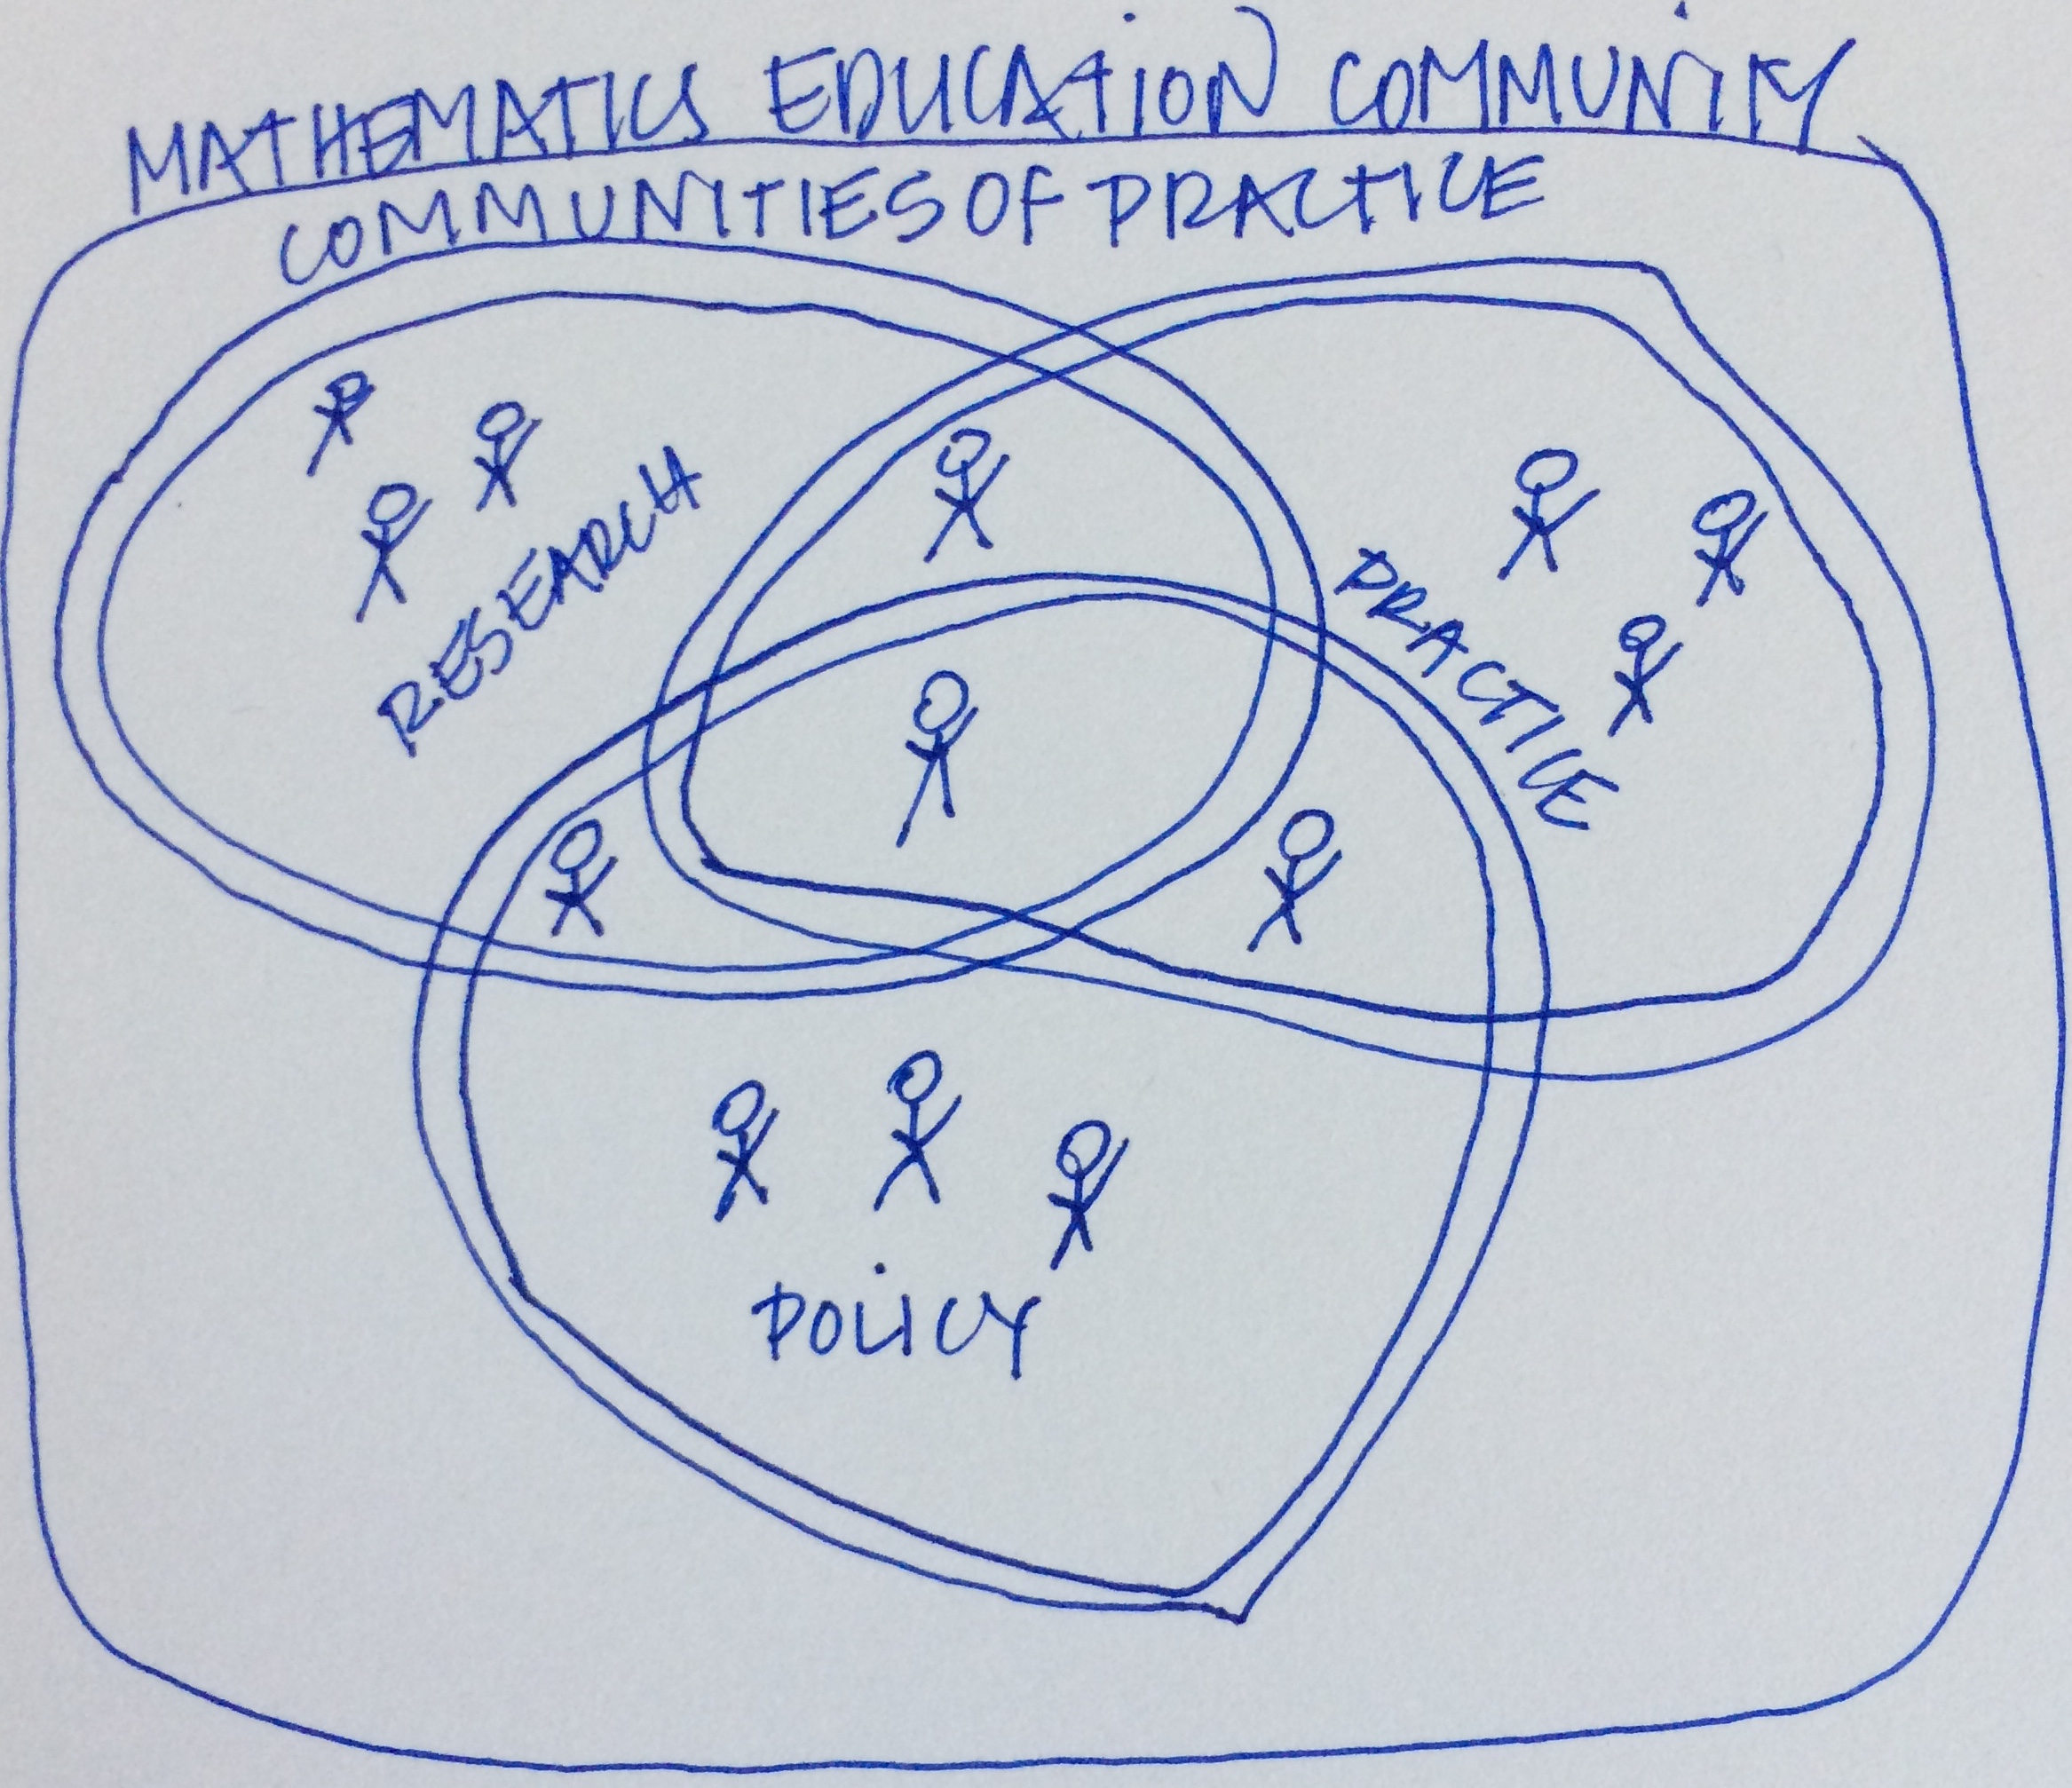 MATHEMATICS EDUCATION COMMUNITY
COMMUNITIES OF PRACTICE
RESEARCH
PRACTICE
POLICY